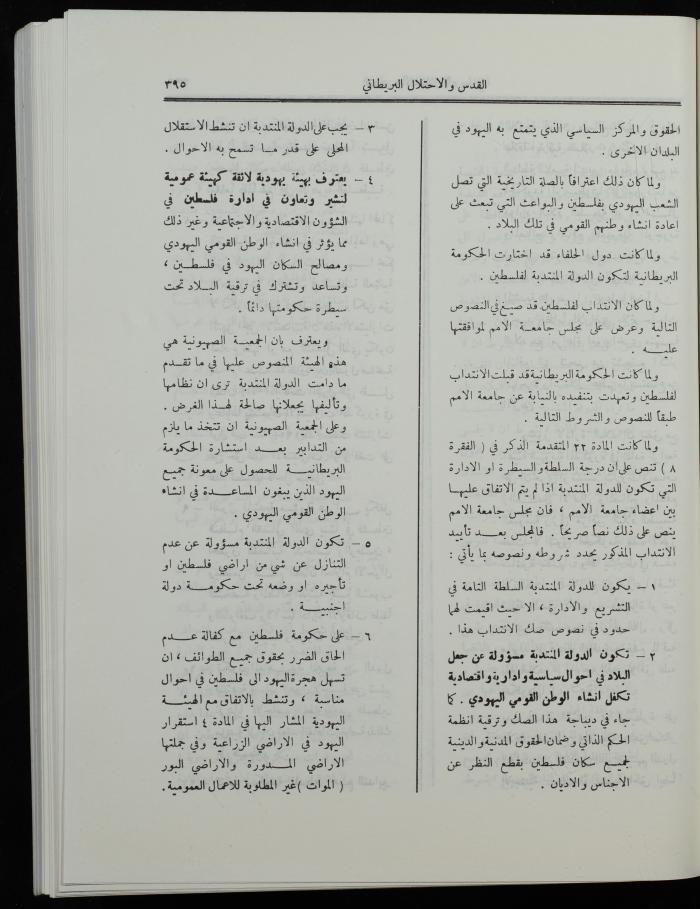 القدس والاحتلال البريطاني
٣٩٥
الحقوق والمركز السياسي الذي يتمتع به اليهود في
البلدان الاخرى .
ولما كان ذلك اعترافاً بالصلة التاريخية التي تصل
الشعب اليهودي بفلسطين والبواعث التي تبعث على
اعادة انشاء وطنهم القومي في تلك البلاد .
ولما كانت دول الحلفاء قد اختارت الحكومة
البريطانية لتكون الدولة المنتدبة لفلسطين .
ولما كان الانتداب لفلسطين قد صيغ في النصوص
التالية وعرض على مجلس جامعة الامم لموافقتها
عليه .
ولما كانت الحكومة البريطانية قد قبلت الانتداب
لفلسطين وتعهدت بتنفيذه بالنيابة عن جامعة الامم
طبقاً للنصوص والشروط التالية .
ولما كانت المادة ٢٢ المتقدمة الذكر في ( الفقرة
٨ ) تنص على ان درجة السلطة والسيطرة او الادارة
التي تكون للدولة المنتدبة اذا لم يتم الاتفاق عليها
بين اعضاء جامعة الامم ، فان مجلس جامعة الامم
ينص على ذلك نصاً صريحاً . فالمجلس بعد تأييد
الانتداب المذكور يحدد شروطه ونصوصه بما يأتي :
١ – يكون للدولة المنتدبة السلطة التامة في
التشريع والادارة ، الا حيث اقيمت لهما
حدود في نصوص صك الانتداب هذا .
٢ – تكون الدولة المنتدبة مسؤولة عن جعل
البلاد في احوال سياسية وادارية واقتصادية
تكفل انشاء الوطن القومي اليهودي . كما
جاء في ديباجة هذا الصك وترقية انظمة
الحكم الذاتي وضمان الحقوق المدنية والدينية
لجميع سكان فلسطين بقطع النظر عن
الاجناس والاديان .
٣ – يجب على الدولة المنتدبة ان تنشط الاستقلال
المحلي على قدر ما تسمح به الاحوال .
٤ – يعترف بهيئة يهودية لائقة كهيئة عمومية
لتشير وتعاون في ادارة فلسطين في
الشؤون الاقتصادية والاجتماعية وغير ذلك
مما يؤثر في انشاء الوطن القومي اليهودي
ومصالح السكان اليهود في فلسطين ،
وتساعد وتشترك في ترقية البلاد تحت
سيطرة حكومتها دائماً .
ويعترف بان الجمعية الصهيونية هي
هذه الهيئة المنصوص عليها في ما تقدم
ما دامت الدولة المنتدبة ترى ان نظامها
وتأليفها يجعلانها صالحة لهذا الغرض .
وعلى الجمعية الصهيونية ان تتخذ ما يلزم
من التدابير بعد استشارة الحكومة
البريطانية للحصول على معونة جميع
اليهود الذين يبغون المساعدة في انشاء
الوطن القومي اليهودي .
٥ – تكون الدولة المنتدبة مسؤولة عن عدم
التنازل عن شي من اراضي فلسطين او
تأجيره او وضعه تحت حكومة دولة
اجنبية .
٦ – على حكومة فلسطين مع كفالة عدم
الحاق الضرر بحقوق جميع الطوائف ، ان
تسهل هجرة اليهود الى فلسطين في احوال
مناسبة ، وتنشط بالاتفاق مع الهيئة
اليهودية المشار اليها في المادة ٤ استقرار
اليهود في الاراضي الزراعية وفي جملتها
الاراضي المدورة والاراضي البور
( الموات ) غير المطلوبة للاعمال العمومية .